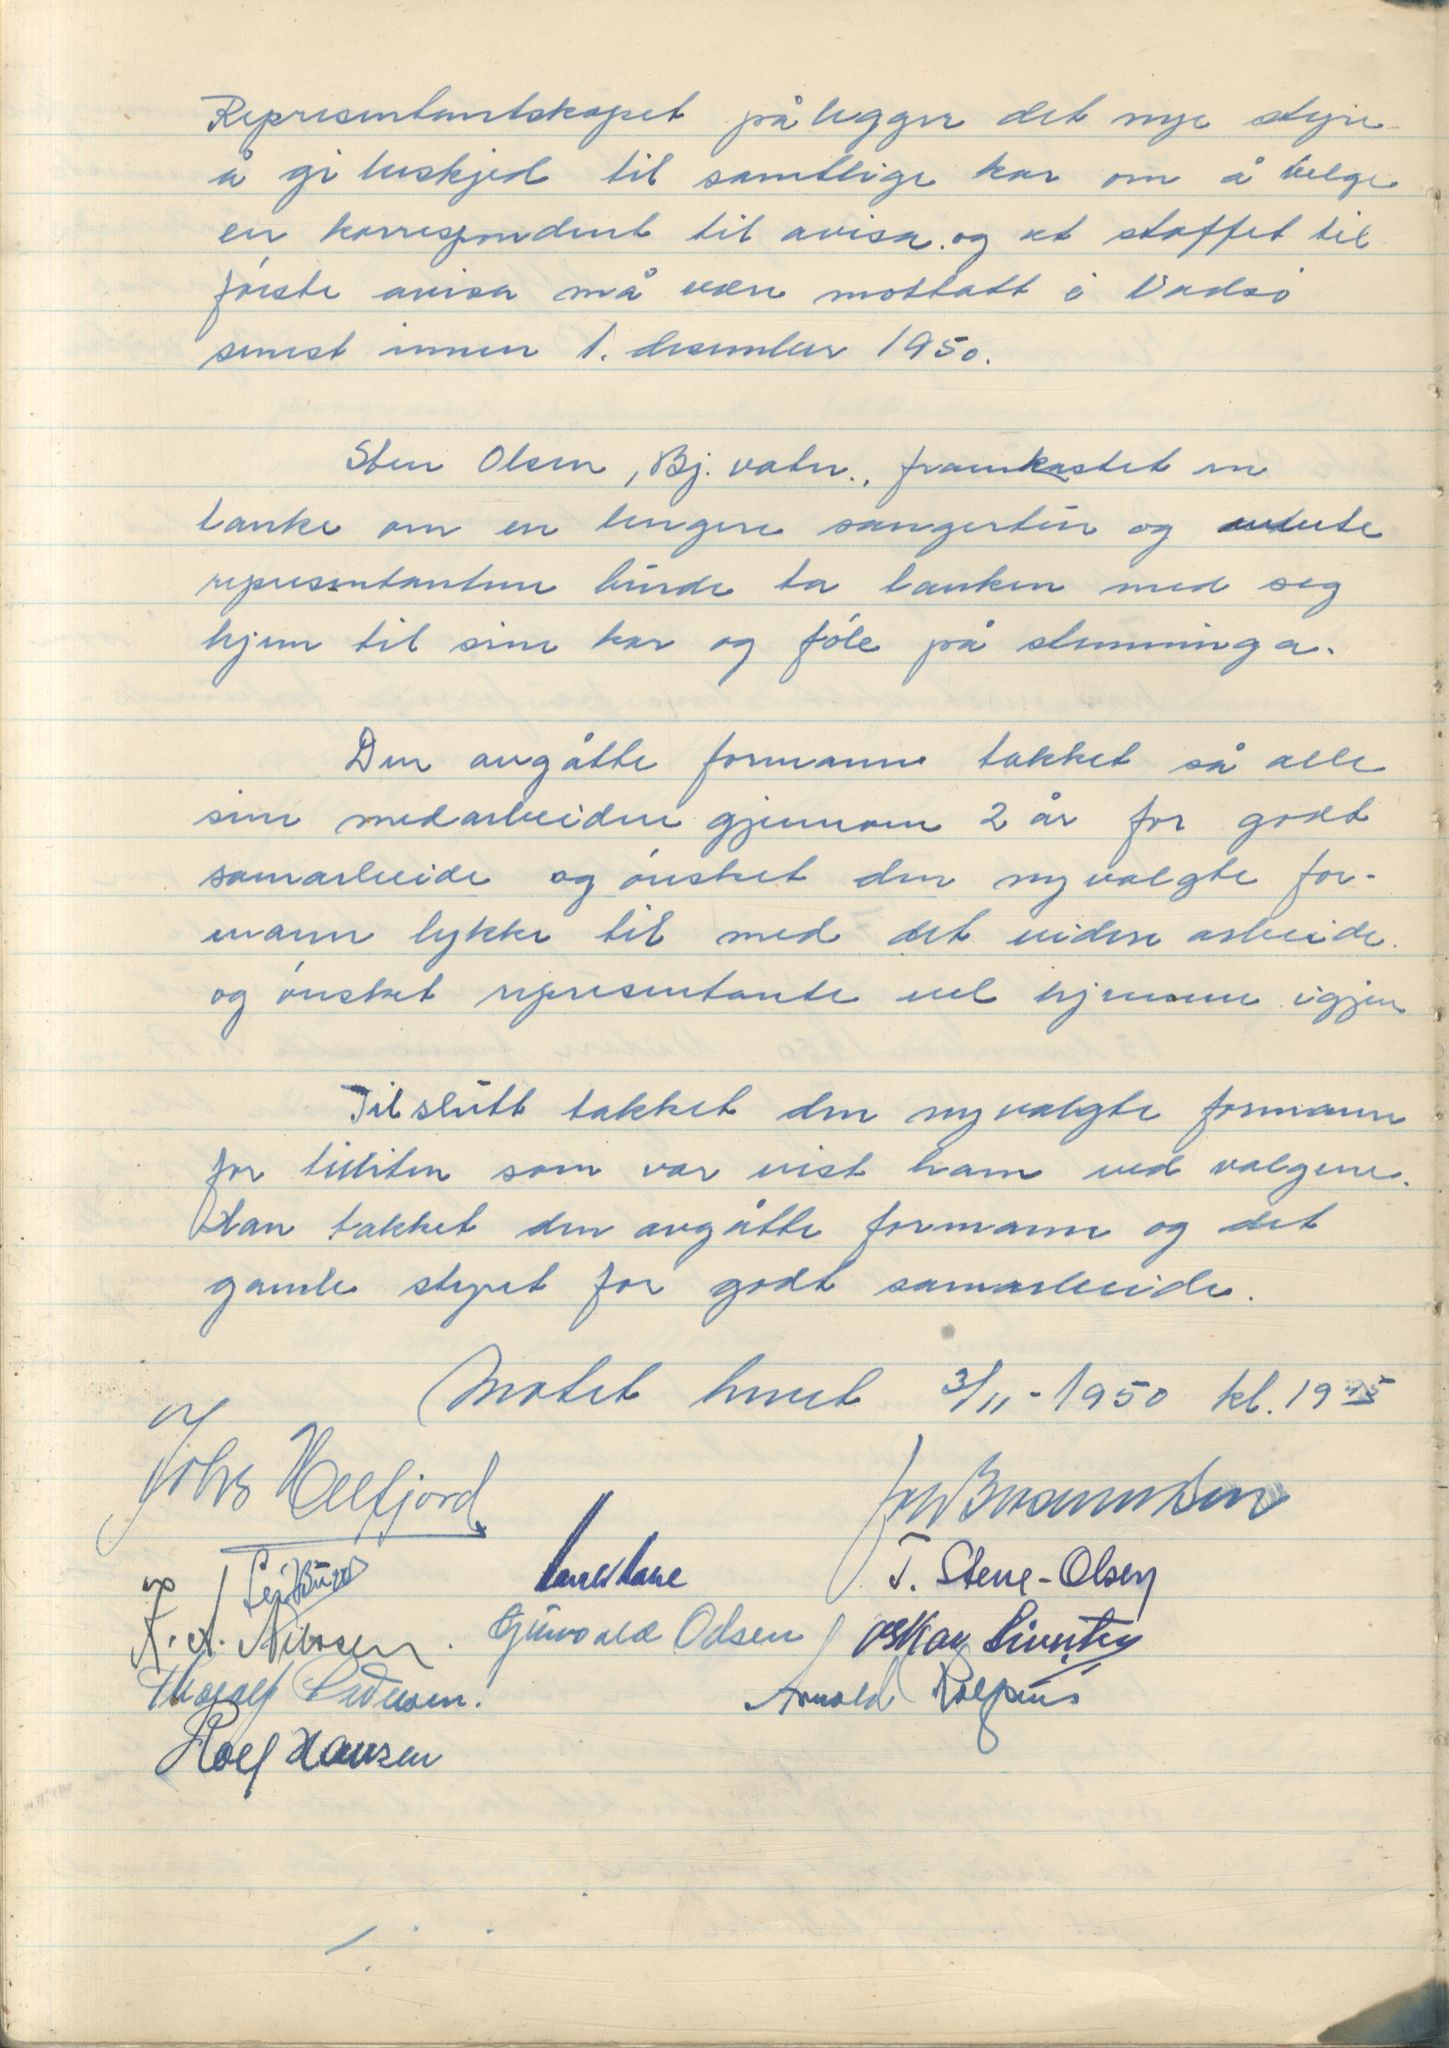 Representantskapet pålegger det nye styre
å gi beskjed til samtlige kor om å velge
en korrespondent til avisa og at stoffet til
første avisa må være mottatt i Vadsø
senest innen 1. desember 1950.
Sten Olsen, Bj. vatn., framkastet en
tanke om en lengere sangertur og
representantene burde ta tanken med seg
hjem til sine kor og føle på stemninga.
Den avgåtte formann takket så alle
sine medarbeidere gjennom 2 år for godt
samarbeide og ønsket den nyvalgte for-
mann lykke til med det videre arbeide.
og ønsket representante vel hjemme igjen
Til slutt takket den nyvalgte formann
for tilliten som var vist ham ved valgene.
Han takket den avgåtte formann og det
gamle styret for godt samarbeide.
Møtet hevet 3/11-1950 kl. 19 45
Johs Hellfjord
T. Stene-Olsen
A. Nilssen. Gunvald Olsen Oskar
Thoralf Pedersen. Arnold
Rolf Hansen